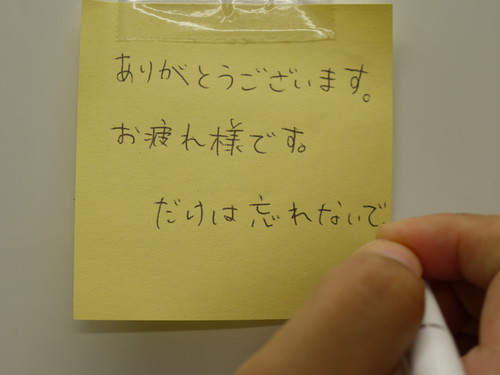 ありがとうございます。
お疲れ様です。
だけは忘れないで